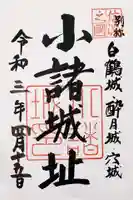 別称
白鶴城 酔月城 穴城
小諸城址
令和三年四月十五日